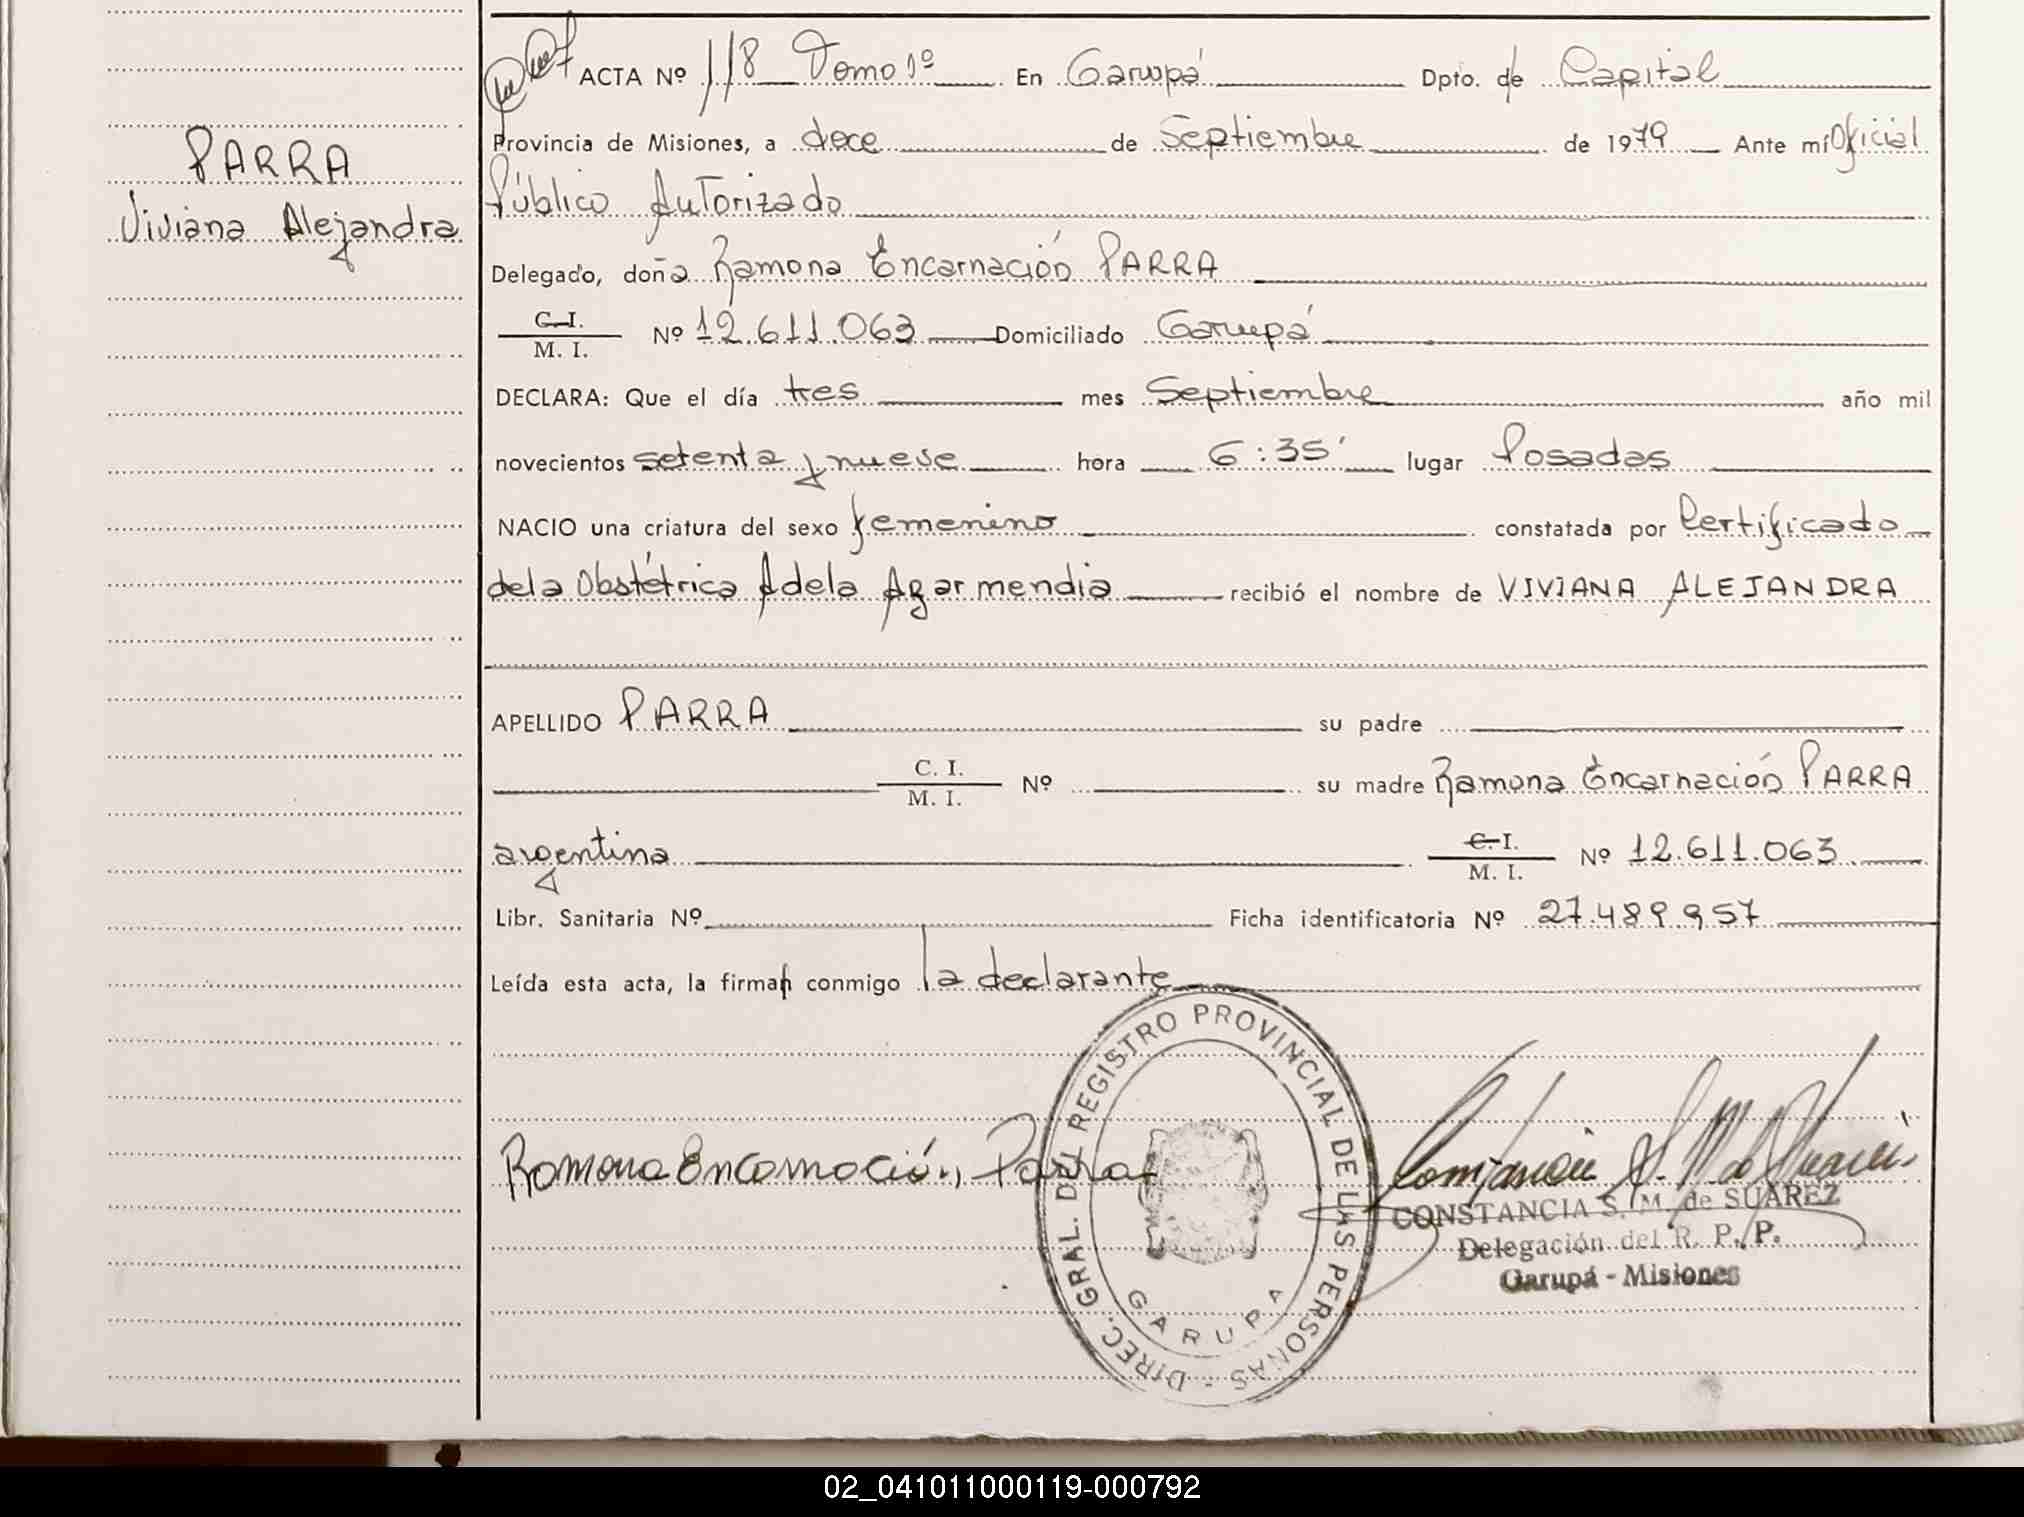 ACTA Nº 118 Tomo 1º En Garupá Dpto. de Capital
Provincia de Misiones, a doce de Septiembre de 1979 Ante mí Oficial
PARRA
Público Autorizado
Viviana Alejandra
Delegado, doña Ramona Encarnación PARRA
C. I.
M. I.
Nº 12.611.063 Domiciliado Garupá
DECLARA: Que el día tres mes Septiembre año mil
novecientos setenta y nueve hora 6:35' lugar Posadas
NACIO una criatura del sexo femenino constatada por Certificado
de la Obstétrica Adela Agarmendia recibió el nombre de VIVIANA ALEJANDRA
APELLIDO PARRA su padre
C. I.
M. I.
Nº su madre Ramona Encarnación PARRA
argentina C. I.
M. I.
Nº 12.611.063
Libr. Sanitaria Nº Ficha identificatoria Nº 27.489.957
Leída esta acta, la firman conmigo la declarante
DIREC. GRAL. DEL REGISTRO PROVINCIAL DE LAS PERSONAS -
GARUPA
Ramona Encarnación, Parra
CONSTANCIA S. M. de SUAREZ
Delegación del R. P. P.
Garupá - Misiones
02_041011000119-000792